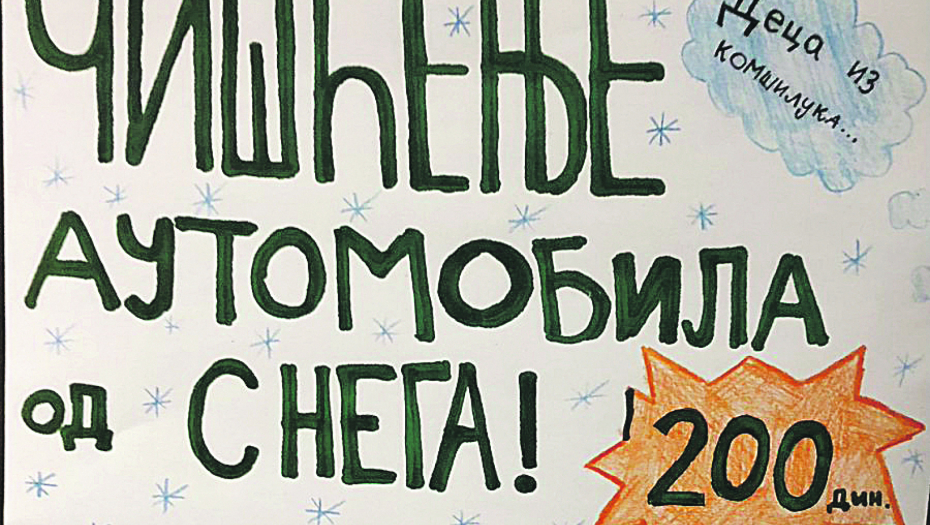 ЧИШЋЕЊЕ
Деца из
комшилука...
АУТОМОБИЛА
од СНЕГА!
200 дин.